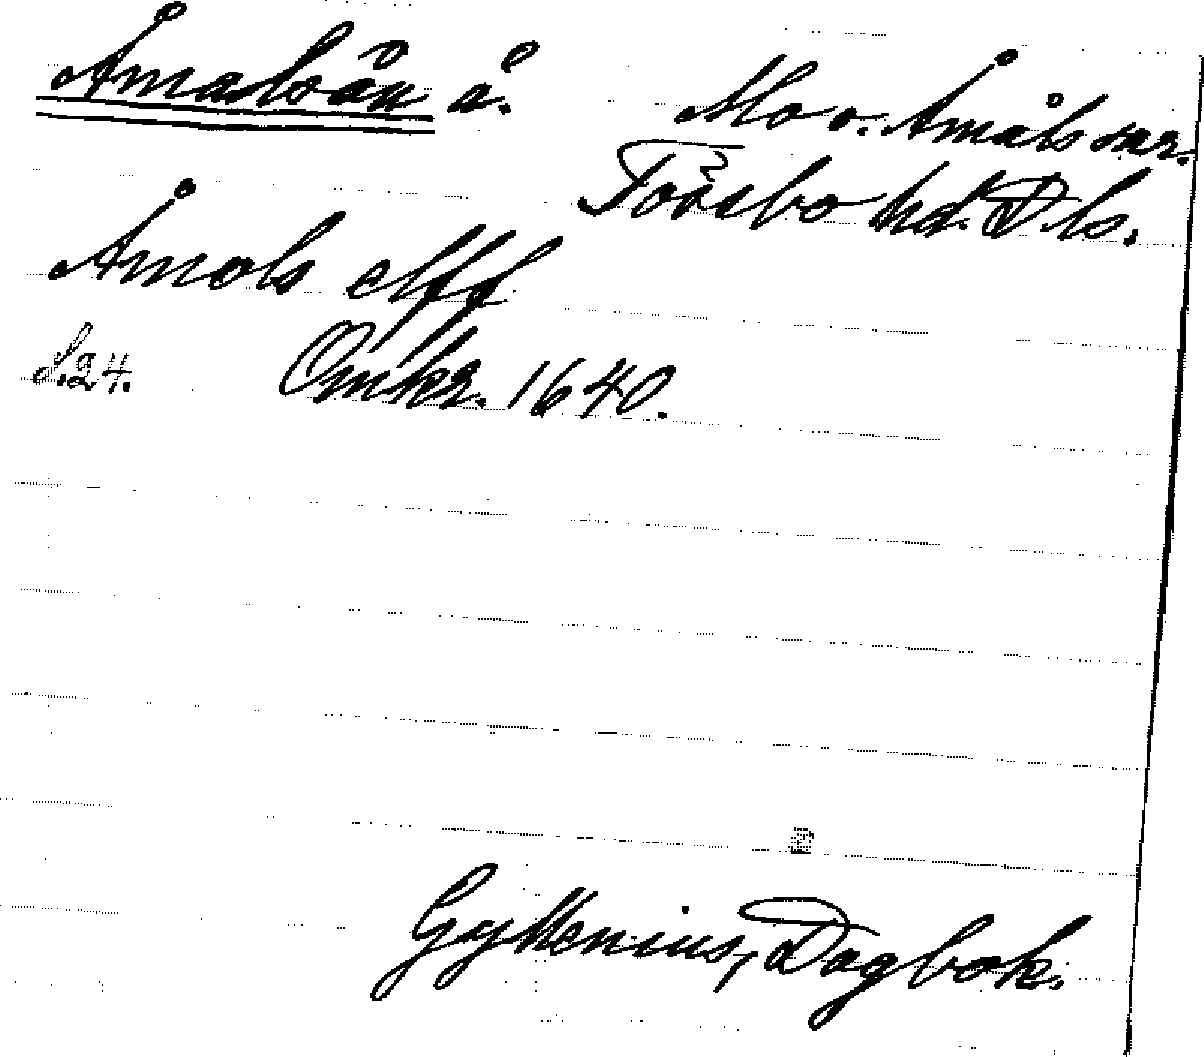 Åmalsån å.
Mo o. Åmåls snr.
Tössbo hd. Dls.
Åmols elff
S.24. Omkr. 1640.
Gyllenius, Dagbok.